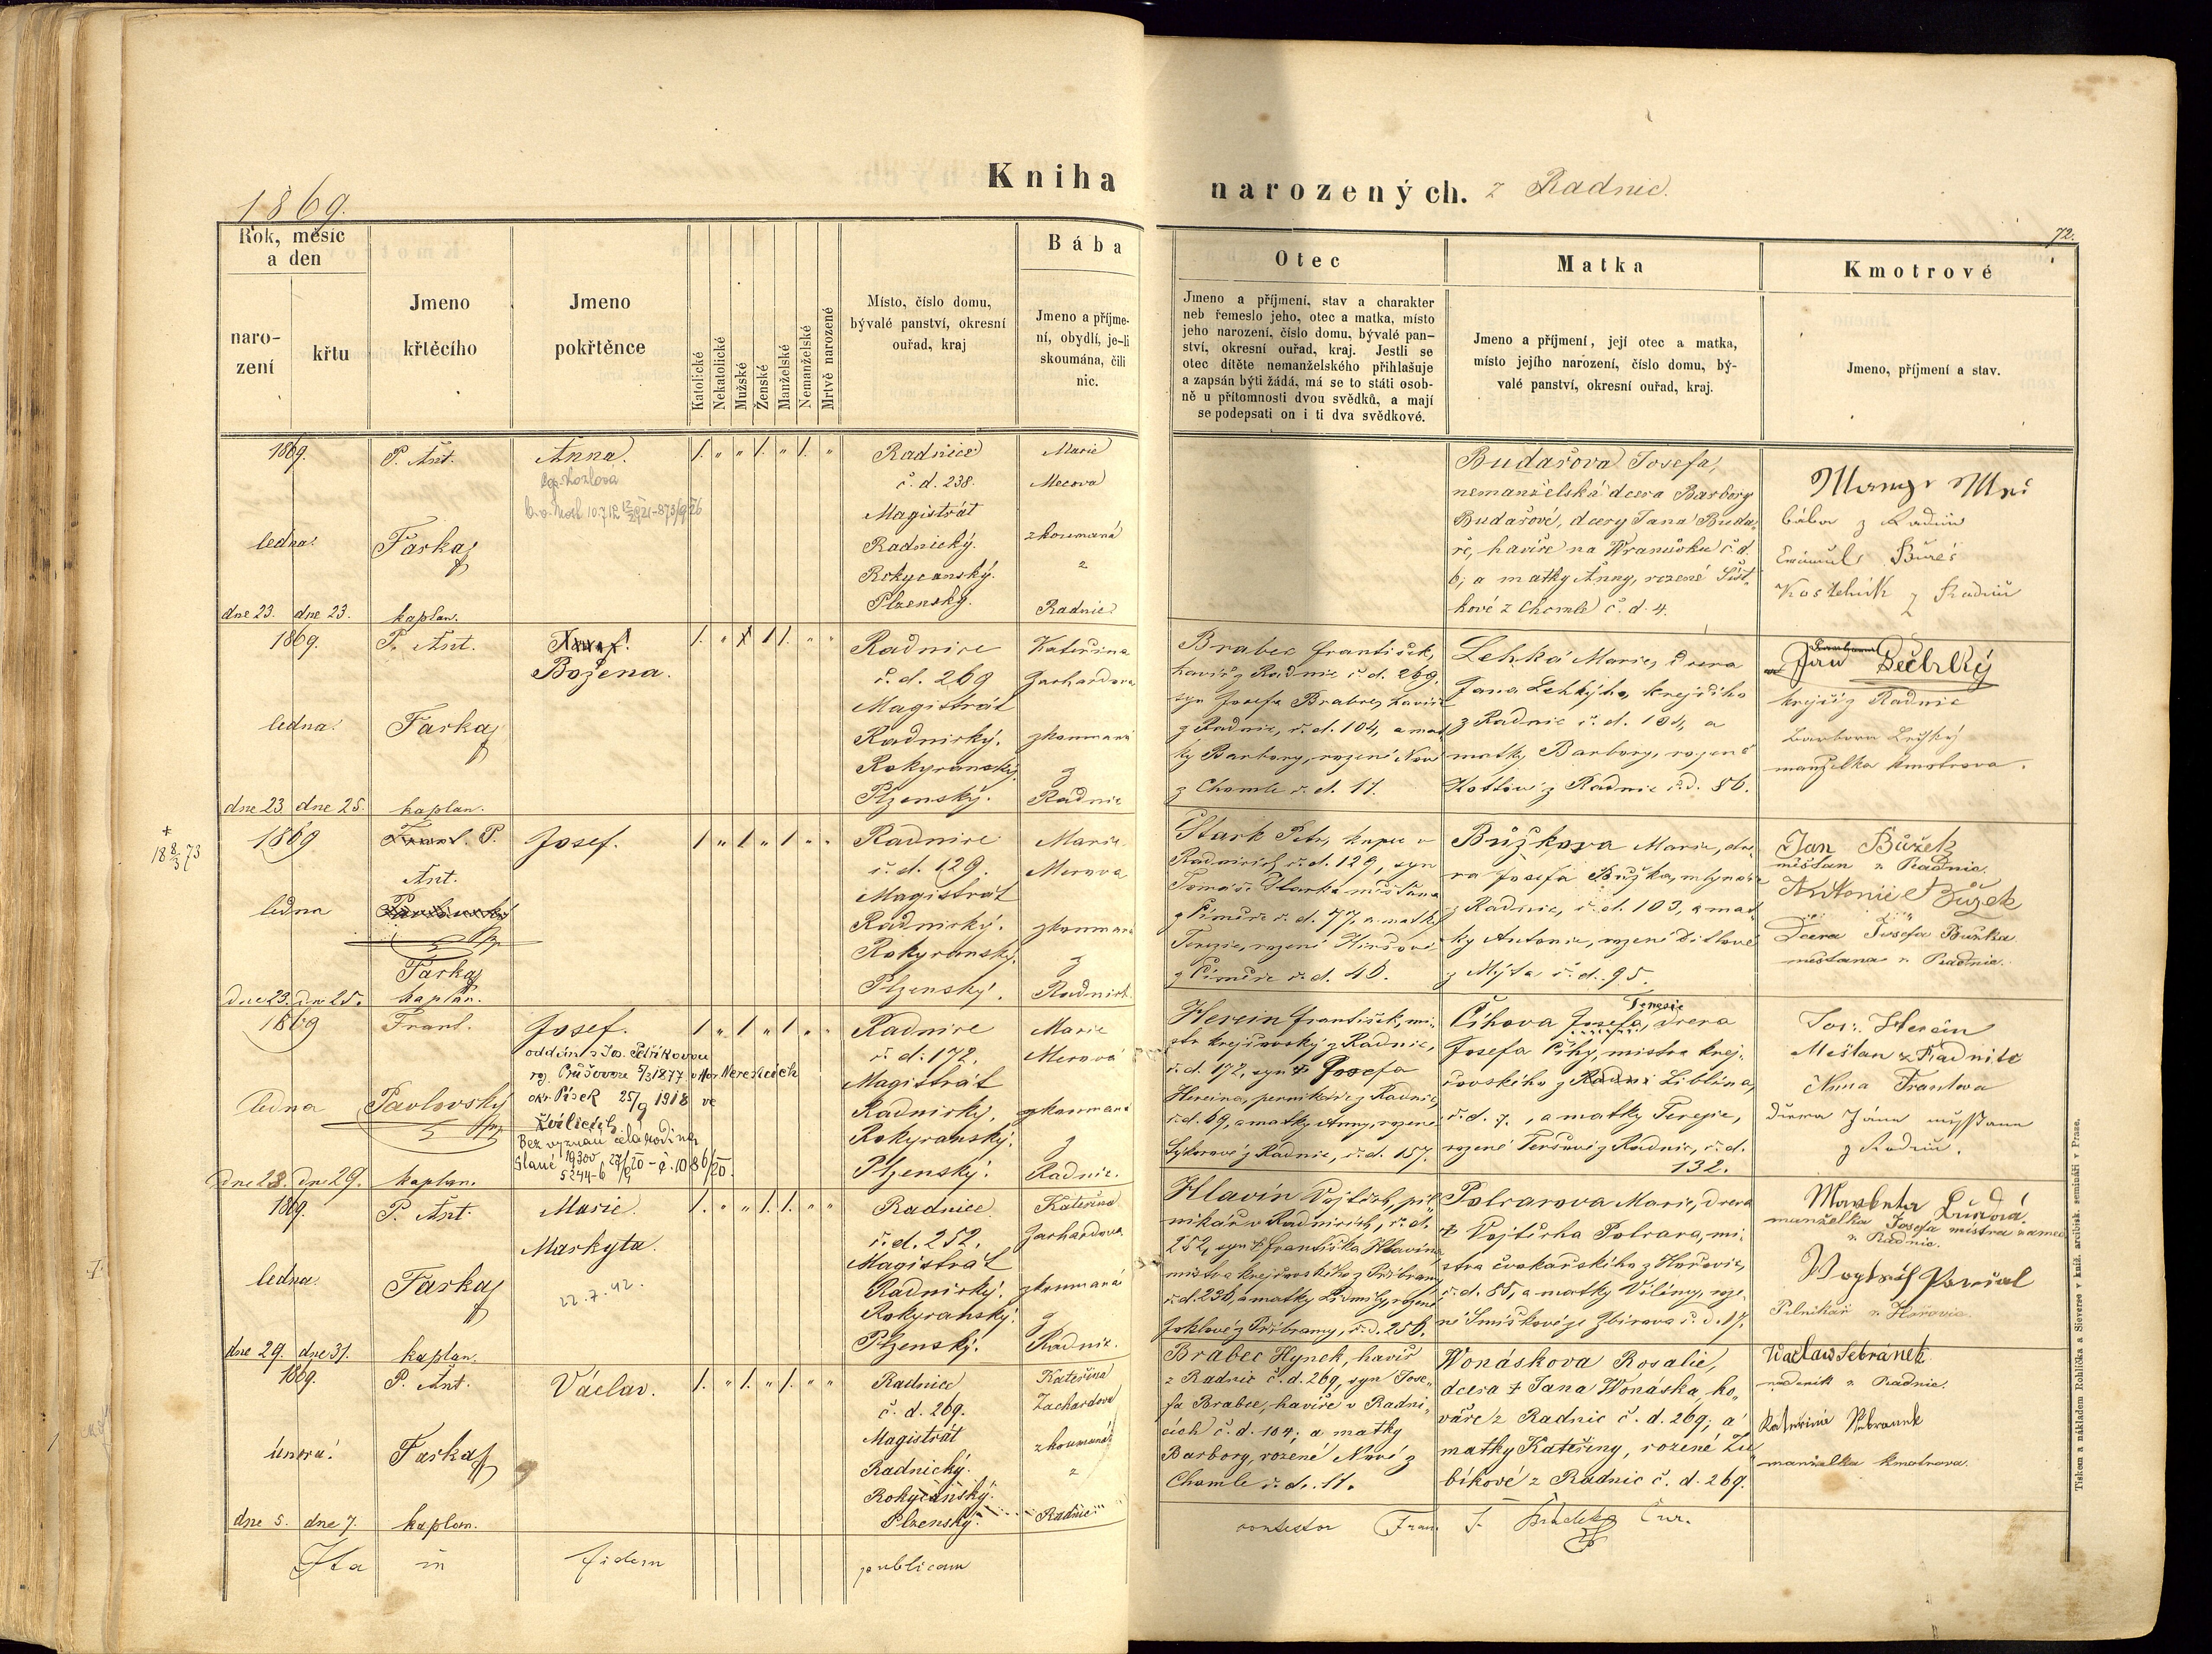 1869.
Kniha narozených. z Radnic.
72.
Rok, měsíc a den
narození
křtu
Jmeno křtěcího
Jmeno pokřtěnce
Katolické
Nekatolické
Mužské
Ženské
Manželské
Nemanželské
Mrtvě narozené
Místo, číslo domu,
bývalé panství, okresní
ouřad, kraj
Bába
Jmeno a příjme-
ní, obydlí, je-li
skoumána, čili
nic.
Otec
Jmeno a příjmení, stav a charakter
neb řemeslo jeho, otec a matka, místo
jeho narození, číslo domu, bývalé pan-
ství, okresní ouřad, kraj. Jestli se
otec dítěte nemanželského přihlašuje
a zapsán býti žádá, má se to státi osob-
ně u přítomnosti dvou svědků, a mají
se podepsati on i ti dva svědkové.
Matka
Jmeno a příjmení, její otec a matka,
místo jejího narození, číslo domu, bý-
valé panství, okresní ouřad, kraj.
Kmotrové
Jmeno, příjmení a stav.
1869.
ledna.
dne 23. dne 23.
P. Ant.
Farka
kaplan.
Anna.
Radnice
č. d. 238.
Magistrát
Radnický.
Rokycanský.
Plzenský.
Marie
Mecova
zkoumaná
z
Radnic
Budařova Josefa,
nemanželská dcera Barbory
Budařové, dcery Jana Buda-
ře, havíře na Wranovku č. d.
6; a matky Anny, rozené Šist-
kové z Chomle č. d. 4.
bába z Radnic
Bureš
Kostelník z Radnic
1869.
ledna.
dne 23. dne 25.
P. Ant.
Farka
kaplan.
Božena.
Radnice
č. d. 269
Magistrát
Radnický.
Rokycanský.
Plzenský.
Kateřina
Zachardova
zkoumaná
z
Radnic
Brabec František,
havíř z Radnic č. d. 269.
syn Josefa Brabce, havíře
z Radnic, č. d. 104, a mat
ky Barbory, rozené Nové
z Chomle č. d. 11.
Lehká Marie, dcera
Jana Lehkýho, krejčího
z Radnic č. d. 101, a
matky Barbory, rozené
z Radnic č. d. 86.
Jan
krejčí z Radnic
Barbora
manželka kmotrova.
+
18 8/3 73
1869
ledna
dne 23. dne 25.
P.
Ant.
Farka
kaplan.
Josef.
Radnice
č. d. 129.
Magistrát
Radnický.
Rokycanský.
Plzenský.
Marie
Mecova
zkoumaná
z
Radnic
Stark Petr, kupec v
Radnicích, č. d. 129, syn
Tomáše Starka měšťana
č. d. 77, a matky
Terezie, rozené
č. d. 46.
Bůžkova Marie, dce
ra Josefa Bůžka, mlynáře
z Radnic, č. d. 103, a mat
ky Antonie, rozené Ditlové
z Mýta č. d. 95.
Jan Bůžek
měšťan v Radnic.
Antonie Bůžek
Dcera Josefa Bůžka
měšťana v Radnic.
1869
ledna
dne 28. dne 29.
Frant.
Pavlovský
kaplan.
Josef.
oddán s Jos. Petříkovou
roz. Průšovou 5/3 1877
okr. Písek 25/9 1918 ve
Zvíkovci
Bez vyznání celá rodina
Slané
Radnice
č. d. 172.
Magistrát
Radnický.
Rokycanský.
Plzenský.
Marie
Mecova
zkoumaná
z
Radnic.
Herein František, mi-
str krejčovský z Radnic,
č. d. 172, syn † Josefa
Hereina, pernikáře z Radnic,
č. d. 69, a matky Anny, rozené
Sykorové z Radnic, č. d. 157.
Terezie
Číhova Josefa, dcera
Josefa Číhy, mistra krej-
čovského z Liblína,
č. d. 7., a matky Terezie,
rozené Teršové z Radnic, č. d.
132.
Jos. Herein
Měšťan z Radnic
Anna Frantova
dcera Jana měšťana
z Radnic.
1869.
ledna.
dne 29. dne 31.
P. Ant.
Farka
kaplan.
Marie
Markyta.
22.7.42.
Radnice
č. d. 252.
Magistrát
Radnický.
Rokycanský.
Plzenský.
Kateřina
Zachardova
zkoumaná
z
Radnic.
Hlavín Vojtěch, pil-
nikář v Radnicích, č. d.
252, syn † Františka Hlavína
mistra krejčovského z Příbramy
č. d. 236, a matky Lidmily, rozené
Joklové z Příbramy, č. d. 256.
Polcarova Marie, dcera
† Vojtěcha Polcara, mi-
stra cvokařského z Hořovic,
č. d. 85, a matky Vilémy, roze-
né Smíškové ze Zbirova č. d. 17.
Markyta
manželka Josefa mistra
v Radnic.
Pilnikář v Hořovic.
1869.
února.
dne 5. dne 7.
P. Ant.
Farka
kaplan.
Václav.
Radnice
č. d. 269.
Magistrát
Radnický.
Rokycanský.
Plzenský.
Kateřina
Zachardova
zkoumaná
z
Radnic
Brabec Hynek, havíř
z Radnic č. d. 269, syn Jose-
fa Brabce, havíře v Radni-
cích č. d. 104; a matky
Barbory, rozené Nové z
Chomle č. d. 11.
Wonáskova Rosalie,
dcera † Jana Wonáska, ko-
váře z Radnic č. d. 269; a
matky Kateřiny, rozené Zu-
bíkové z Radnic č. d. 269.
Waclaw Sebránek
nádeník z Radnic.
Kateřina Sebranek
manželka kmotrova.
Ita in fidem publicam contestor Fran. Cur.
Tiskem a nákladem Rohlíčka a Sieverse v kníž. arcibisk. semináři v Praze.